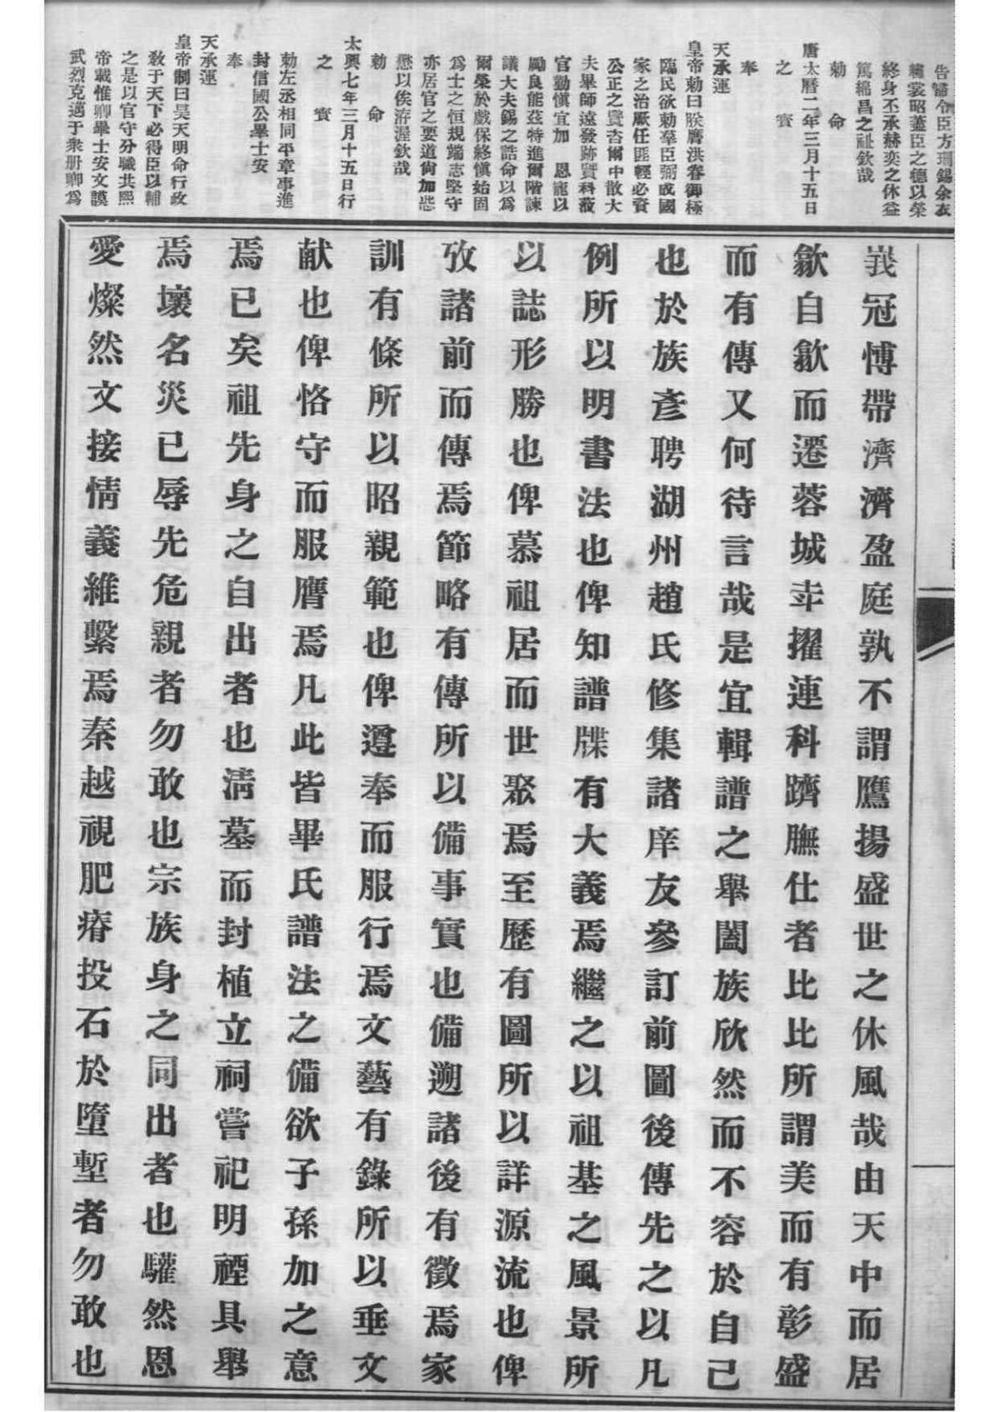 告誓令臣方珊錫余衣
繡裳昭藎臣之德以榮
終身丕承赫奕之休益
篤綿昌之祉欽哉
勅命
唐太曆二年三月十五日
之寶
奉
天承運
皇帝勅曰朕膺洪眷御極
臨民欲勅羣臣弼成國
家之治厥任匪輕必資
公正之賢咨爾中散大
夫畢師遠發跡賢科蔽
官勤慎宜加恩寵以
勵良能茲特進爾階諫
議大夫錫之誥命以爲
爾榮於戲保終慎始固
爲士之恒規端志堅守
亦居官之要道尙加懋
懋以俟洊渥欽哉
勅命
太興七年三月十五日行
之寶
勅左丞相同平章事進
封信國公畢士安
奉
天承運
皇帝制曰昊天明命行政
敎于天下必得臣以輔
之是以官守分職共熙
帝載惟卿畢士安文謨
武烈克邁于衆册卿爲
峩冠愽帶濟濟盈庭孰不謂鷹揚盛世之休風哉由天中而居
歙自歙而遷蓉城幸擢連科躋膴仕者比比所謂美而有彰盛
而有傳又何待言哉是宜輯譜之舉闔族欣然而不容於自己
也於族彥聘湖州趙氏修集諸庠友參訂前圖後傳先之以凡
例所以明書法也俾知譜牒有大義焉繼之以祖基之風景所
以誌形勝也俾慕祖居而世聚焉至歷有圖所以詳源流也俾
攷諸前而傳焉節略有傳所以備事實也備遡諸後有徵焉家
訓有條所以昭親範也俾遵奉而服行焉文藝有錄所以垂文
献也俾恪守而服膺焉凡此皆畢氏譜法之備欲子孫加之意
焉已矣祖先身之自出者也淸墓而封植立祠嘗祀明禋具舉
焉壞名災已辱先危親者勿敢也宗族身之同出者也驩然恩
愛燦然文接情義維繫焉秦越視肥瘠投石於墮塹者勿敢也